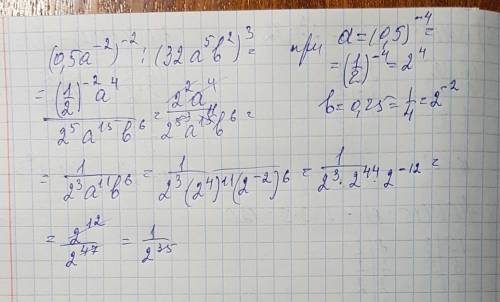 (0,5a⁻²)⁻² : (32a⁵b²)³ = при a = (0,5)⁻⁴ =
= (1/2)⁻⁴ = 2⁴
b = 0,25 = 1/4 = 2⁻²
= (1/2)⁻²a⁴ / 2⁵a¹⁵b⁶ = 2²a⁴ / 2⁵a¹⁵b⁶ =
= 1 / 2³a¹¹b⁶ = 1 / 2³(2⁴)¹¹(2⁻²)⁶ = 1 / 2³·2⁴⁴·2⁻¹² =
= 2¹² / 2⁴⁷ = 1 / 2³⁵